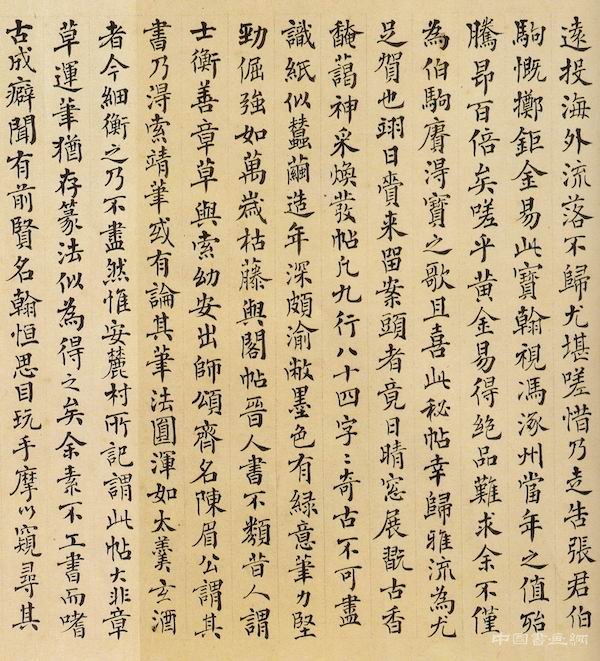 遠投海外流落不歸尤堪嗟惜乃走告張君伯
駒慨擲鉅金易此寶翰視馮涿州當年之值殆
騰昂百倍矣嗟乎黃金易得絕品難求余不僅
為伯駒賡得寶之歌且喜此秘帖幸歸雅流為尤
足賀也翊日賫來留案頭者竟日晴窓展翫古香
馣藹神采煥發帖凡九行八十四字〻奇古不可盡
識紙似蠶繭造年深頗渝敝墨色有綠意筆力堅
勁倔強如萬歲枯藤與閣帖晉人書不類昔人謂
士衡善章草與索幼安出師頌齊名陳眉公謂其
書乃得索靖筆或有論其筆法圓渾如太羹玄酒
者今細衡之乃不盡然惟安麓村所記謂此帖大非章
草運筆猶存篆法似為得之矣余素不工書而嗜
古成癖聞有前賢名翰恒思目玩手摩以窺尋其
中国書画網